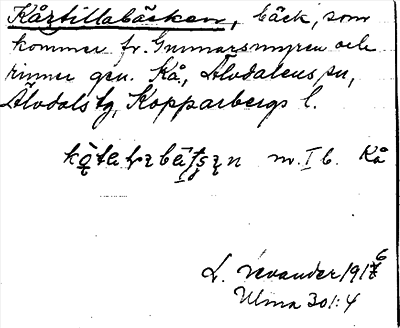 Kåztillabäcken, bäck, som
kommer fr. Gunnarsmyren och
rinner gm. Kå, Älvdalens sn,
Älvdals tg, Kopparbergs l.
m. I b. Kå
L. Levander 1916
Ulma 301:4